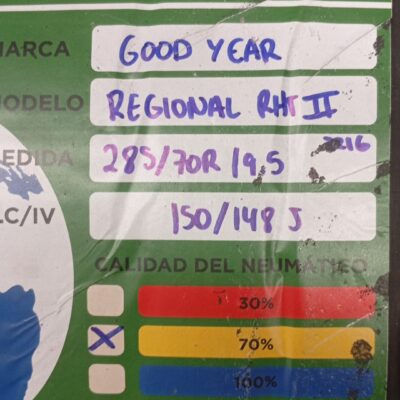 MARCA GOOD YEAR
MODELO REGIONAL RHT II
MEDIDA 285/70R 19,5 3216
LC/IV 150/148 J
CALIDAD DEL NEUMÁTICO
30%
X 70%
100%